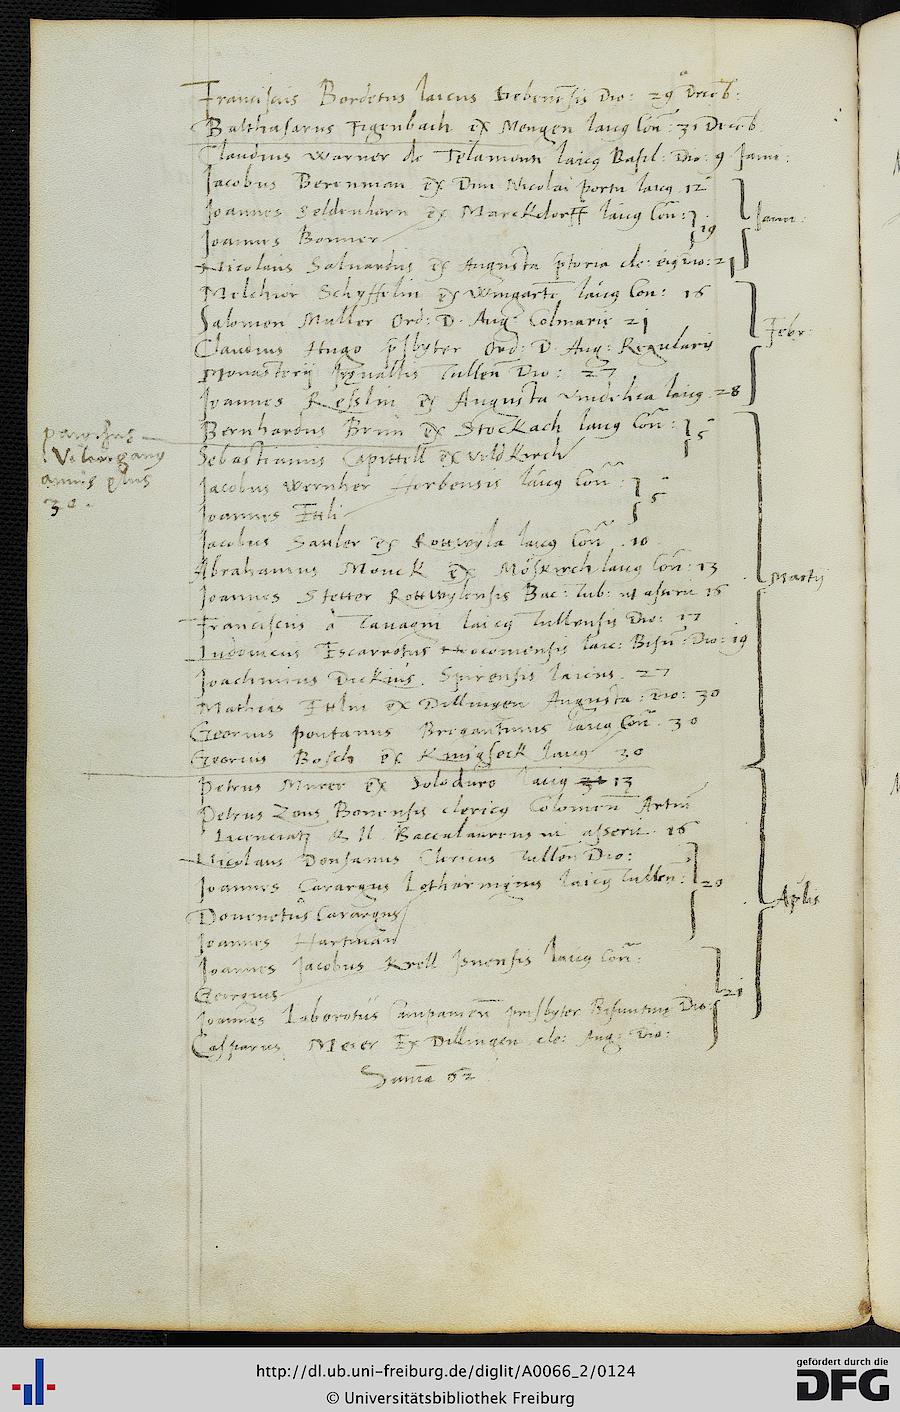 Franciscus Bordotus laicus Gebenensis Dio: 29ᵃ Decēb:
Balthasarus Figenbach ex Mengen laicg Con̄: 31 Decēb.
Claudius Warner de Telamonn laicg Basil: Dio: 9 Janu:
Jacobus Berenman ex Diui Nicolai portu laicg 12
Joannes Seldenhorn ex Marckdorff laicg Con̄: 19 Janu:
Joannes Bonner
Nicolaus Saluardus ex Augusta ptoria cle: eig Dio: 21
Melchior Schyffelin ex Wingartē laicg Con: 16
Salomon Muller Ord: D. Aug: Colmarie 21 Febr:
Claudius Hugo psbyter Ord: D. Aug: Regularis
Monasterij Tullen̄ Dio: 27
Joannes Resslin ex Augusta Vindelica laicg 28
Bernhardus Brun ex Stockach laicg Con̄: 5
Sebastianus Capittell ex Veldkirch
annis plus
30.
Jacobus Wernher Horbensis laicg Con̄: 5
Joannes Ettli
Jacobus Sattler ex Rottwyla laicg Con̄. 10
Abrahamus Monck ex Möskirch laicg Con̄: 13
Martij
Joannes Stetter Rottwylensis Bac: Tub: ut asserit 16
Franciscus a Tauagni laicg Tullensis Dio: 17
Ludouicus Escarrotus laic: Bisū: Dio: 19
Joachimus Dickius. Spirensis laicus. 27
Mathias Ettlin ex Dillingen Augusta: Dio: 30
Georius Pontanus Brigantinus laicg Con̄. 30
Georius Bosch ex Knigseck laicg 30
Petrus Murer ex Soloduro laicg 13
Petrus Zons Bonensis clericg Colonien̄ Artiū
Licenciatg & II Baccalaureus ut asserit. 16
Nicolaus Donsanus Clericus Tullen̄ Dio:
Joannes Carargus Lotharingus laicg Tullen̄: 20
Aplis
Carargus
Joannes Hartman
Joannes Jacobus Krell Isnensis laicg Con̄:
Georgius
21
Joannes Loborotus presbyter Bisuntin Dio:
Casparus Meier Ex Dillingen cle: Aug: Dio:
Suma 62
http://dl.ub.uni-freiburg.de/diglit/A0066_2/0124
© Universitätsbibliothek Freiburg
gefördert durch die
DFG